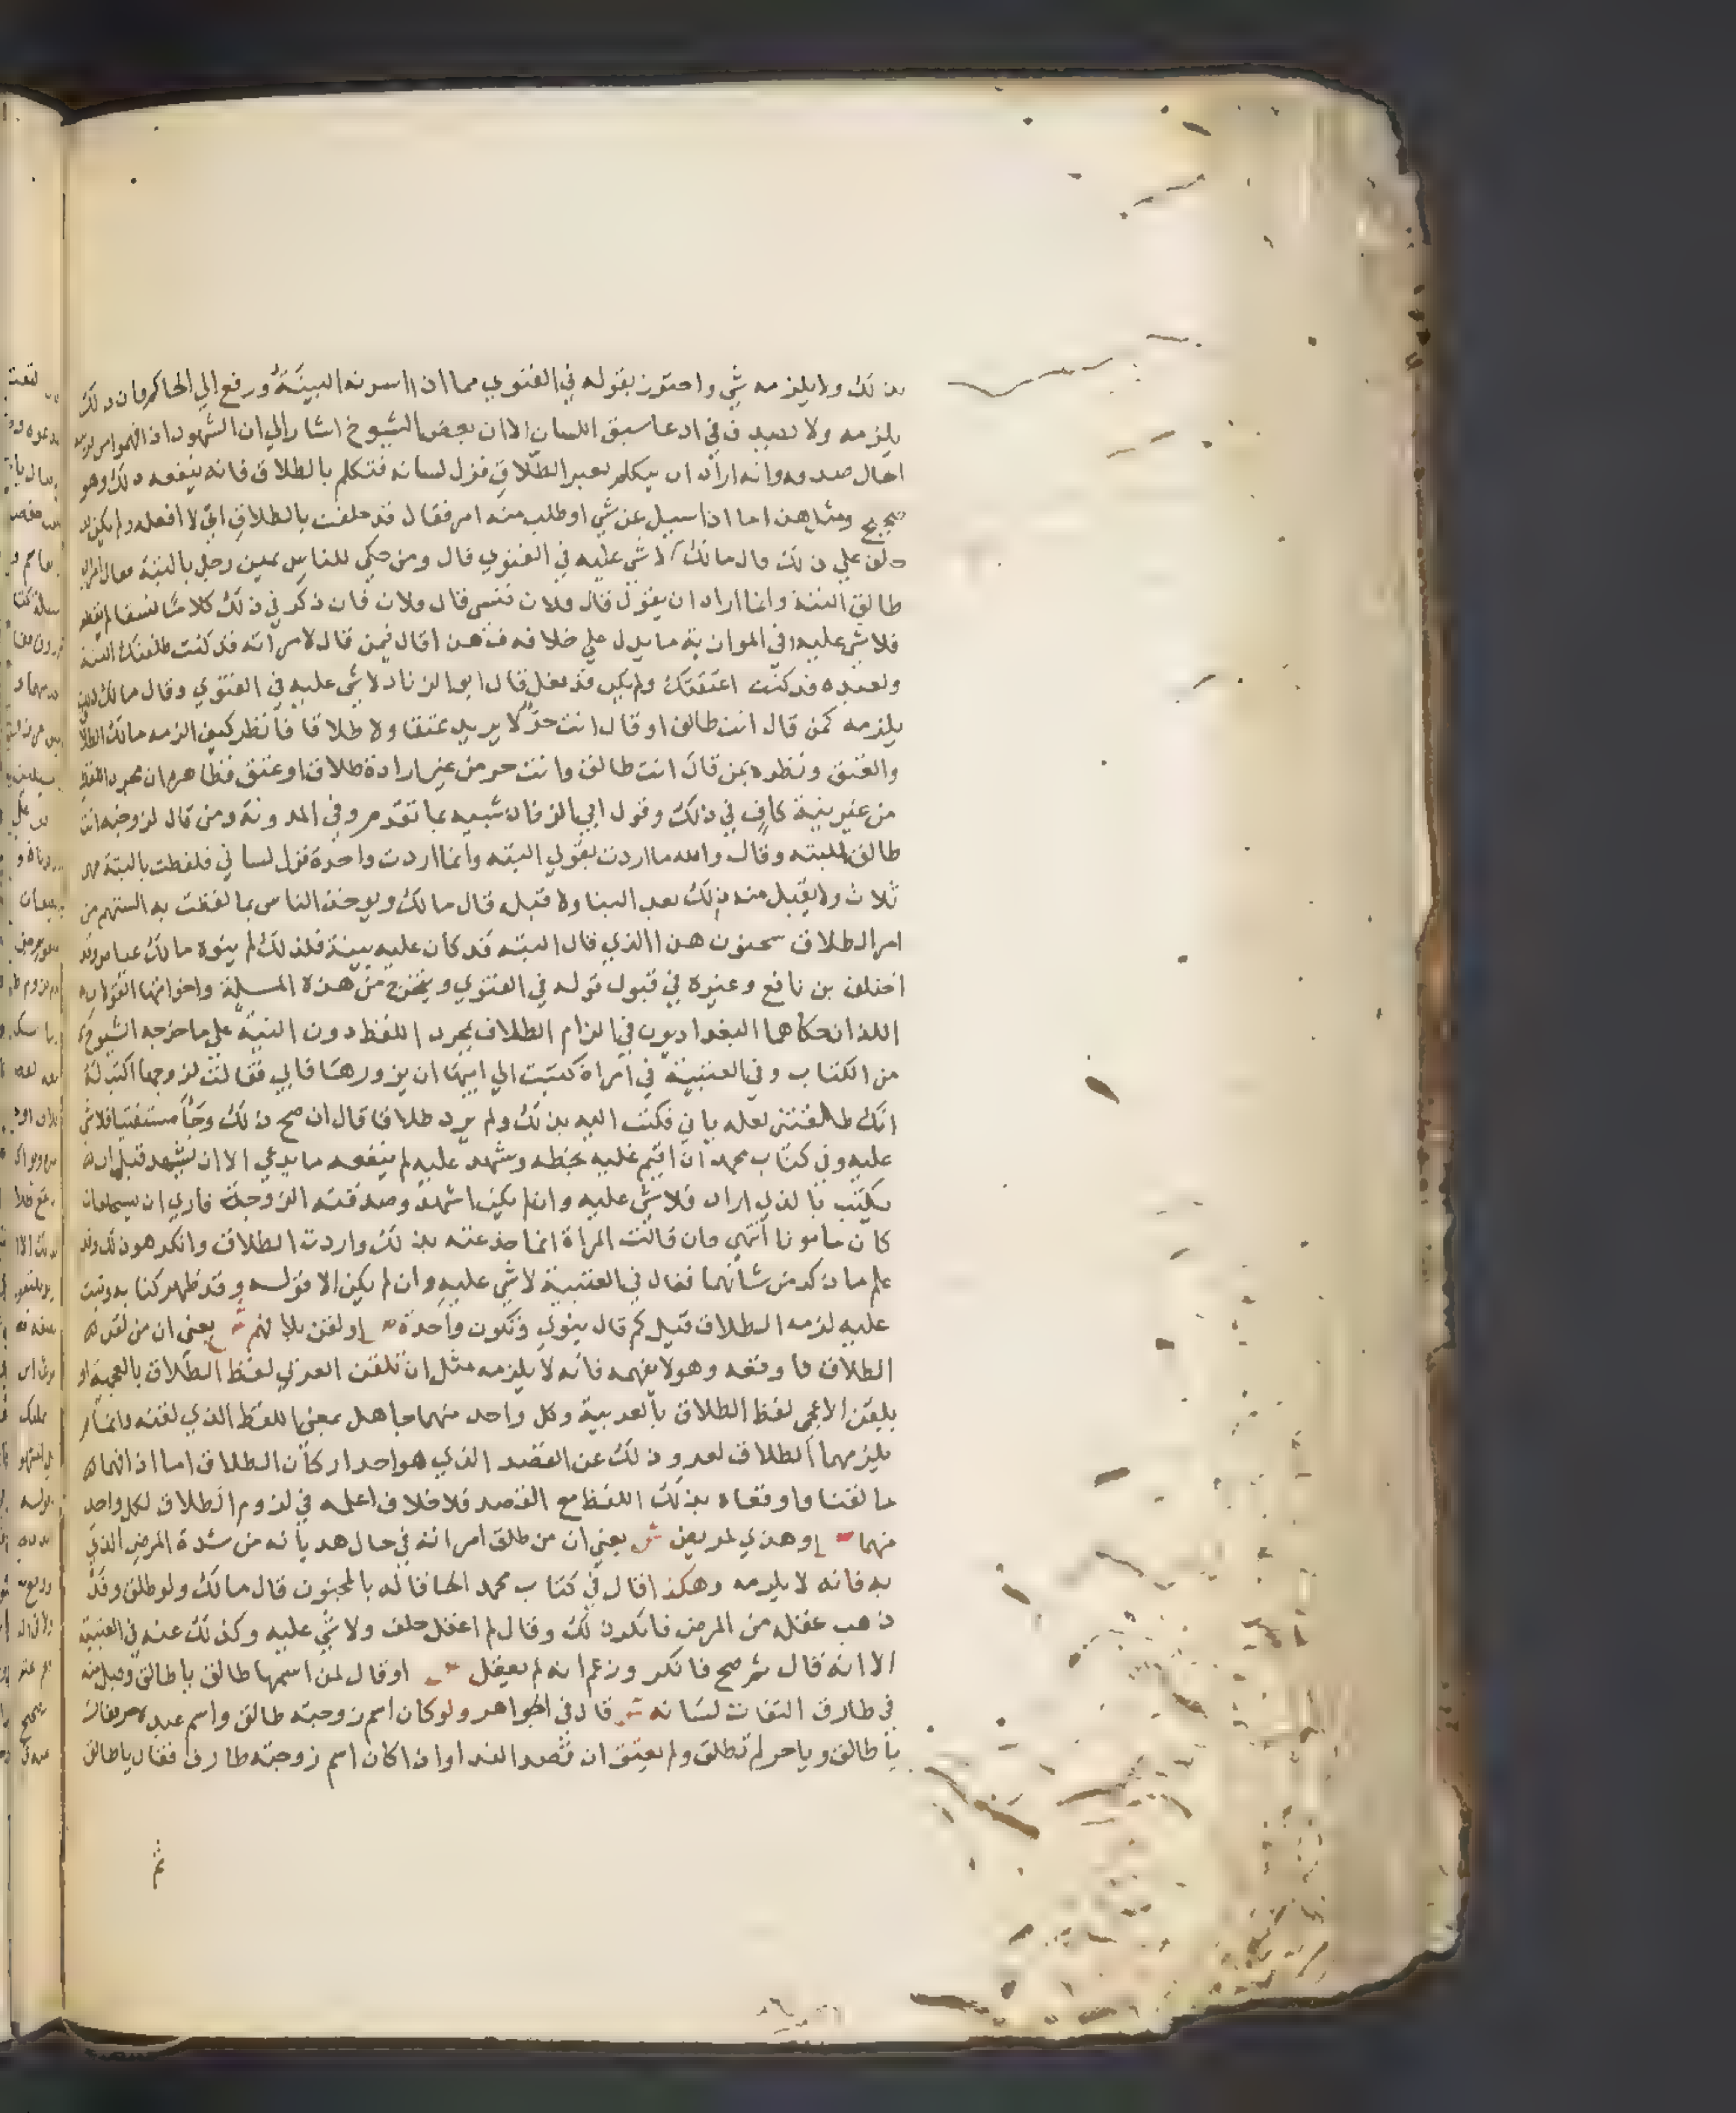 بذلك ولا يلزمه شي واحترز بقوله في الفتوي مما اذا اسرته البينة ورفع الي الحاكم فان ذلك
يلزمه ولا يصدق في ادعا سبق اللسان الا ان بعض الشيوخ اشار الي ان الشهود اذا فهموا من
حال صدقه وانه اراد ان يتكلم بغير الطلاق فزل لسانه فتكلم بالطلاق فانه ينفعه ذلك وهو
صحيح ومثل هذا ما اذا سيل عن شي او طلب منه امر فقال قد حلفت بالطلاق اني لا افعله ولم يكن
حلف علي ذلك قال مالك لا شي عليه في الفتوي قال ومن حكي للناس يمين رجل بالبتة فقال امراته
طالق البتة وانما اراد ان يقول قال فلان فنسي قال فلان فان ذكر في ذلك كلاما نسقا لم يقطعه
فلا شي عليه وفي الموازية ما يدل علي خلافه فذهذا قال فيمن قال لامراته قد كنت طلقتك البتة
ولعبده قد كنت اعتقتك ولم يكن قد فعل قال ابو الزناد لا شي عليه في الفتوي وقال مالك
يلزمه كمن قال انت طالق او قال انت حر لا يريد عتقا ولا طلاقا فانظر كيف الزمه مالك الطلاق
والعتق ونظره بمن قال انت طالق وانت حر من غير ارادة طلاق او عتق فظاهره ان مجرد اللفظ
من غير نية كاف في ذلك وقول ابي الزناد شبيه بما تقدم وفي المدونة ومن قال لزوجته انت
طالق البته وقال والله ما اردت بقولي البته وانما اردت واحدة فزل لساني فلفظت بالبتة فهي
ثلاث ولا يقبل منه ذلك بعد البنا ولا قبله قال مالك ويوخذ الناس بما لفظت به السنتهم من
امر الطلاق سحنون هذا الذي قال البته قد كان عليه بينة فلذلك لم ينوه مالك عياض وقد
اختلف بن نافع وغيره في قبول قوله في الفتوي ويتخرج من هذه المسلة واخواتها القولان
اللذان حكاهما البغداديون في الزام الطلاق بمجرد اللفظ دون النية علي ما خرجه الشيوخ
من الكتاب وفي العتبية في امراة كتبت الي ابيها ان يزورها فابي فقالت لزوجها اكتب له
انك طلقتني لعله ياتي فكتب اليه بذلك ولم يرد طلاقا قال ان صح ذلك وجا مستفتيا فلا شي
عليه وفي كتاب محمد ان اقيم عليه بخطه وشهد عليه لم ينفعه ما يدعي الا ان يشهد قبل ان
يكتب بالذي اراد فلا شي عليه وان لم يكن اشهد وصدقته الزوجة فاري ان يحلفا ان
كان مامونا انتهي فان قالت المراة انما خدعته بذلك واردت الطلاق وانكر هو ذلك وقد
علم ما ذكر من شانهما فقال في العتبية لا شي عليه وان لم يكن الا قوله وقد ظهر كتابه وثبت
عليه لزمه الطلاق قيل كم قال ينوي وتكون واحدة ص او لقن بلا فهم ش يعني ان من لقن
الطلاق فاوقعه وهو لا يفهمه فانه لا يلزمه مثل ان تلقن العربي لفظ الطلاق بالعجمية او
يلقن الاعجمي لفظ الطلاق بالعربية وكل واحد منهما جاهل بمعني اللفظ الذي لقنه وانما لم
يلزمهما الطلاق لعروذلك عن القصد الذي هو احد اركان الطلاق اما اذا فهما
ما لقنا واوقعاه بذلك اللفظ مع القصد فلا خلاف اعلمه في لزوم الطلاق لكل واحد
منهما ص او هذي لمرض ش يعني ان من طلق امراته في حال هذيانه من شدة المرض الذي
به فانه لا يلزمه وهكذا قال في كتاب محمد الحاقا له بالمجنون قال مالك ولو طلق وقد
ذهب عقله من المرض فانكر ذلك وقال لم اعقل حلف ولا شي عليه وكذلك عنه في العتبية
الا انه قال ثم صح فانكر وزعم انه لم يعقل ص او قال لمن اسمها طالق يا طالق وقبل منه
في طارق التفات لسانه ش قال في الجواهر ولو كان اسم زوجته طالق واسم عبده حر فقال
يا طالق ويا حر لم تطلق ولم يعتق ان قصد الندا وان كان اسم زوجته طارق فقال يا طالق
ثم